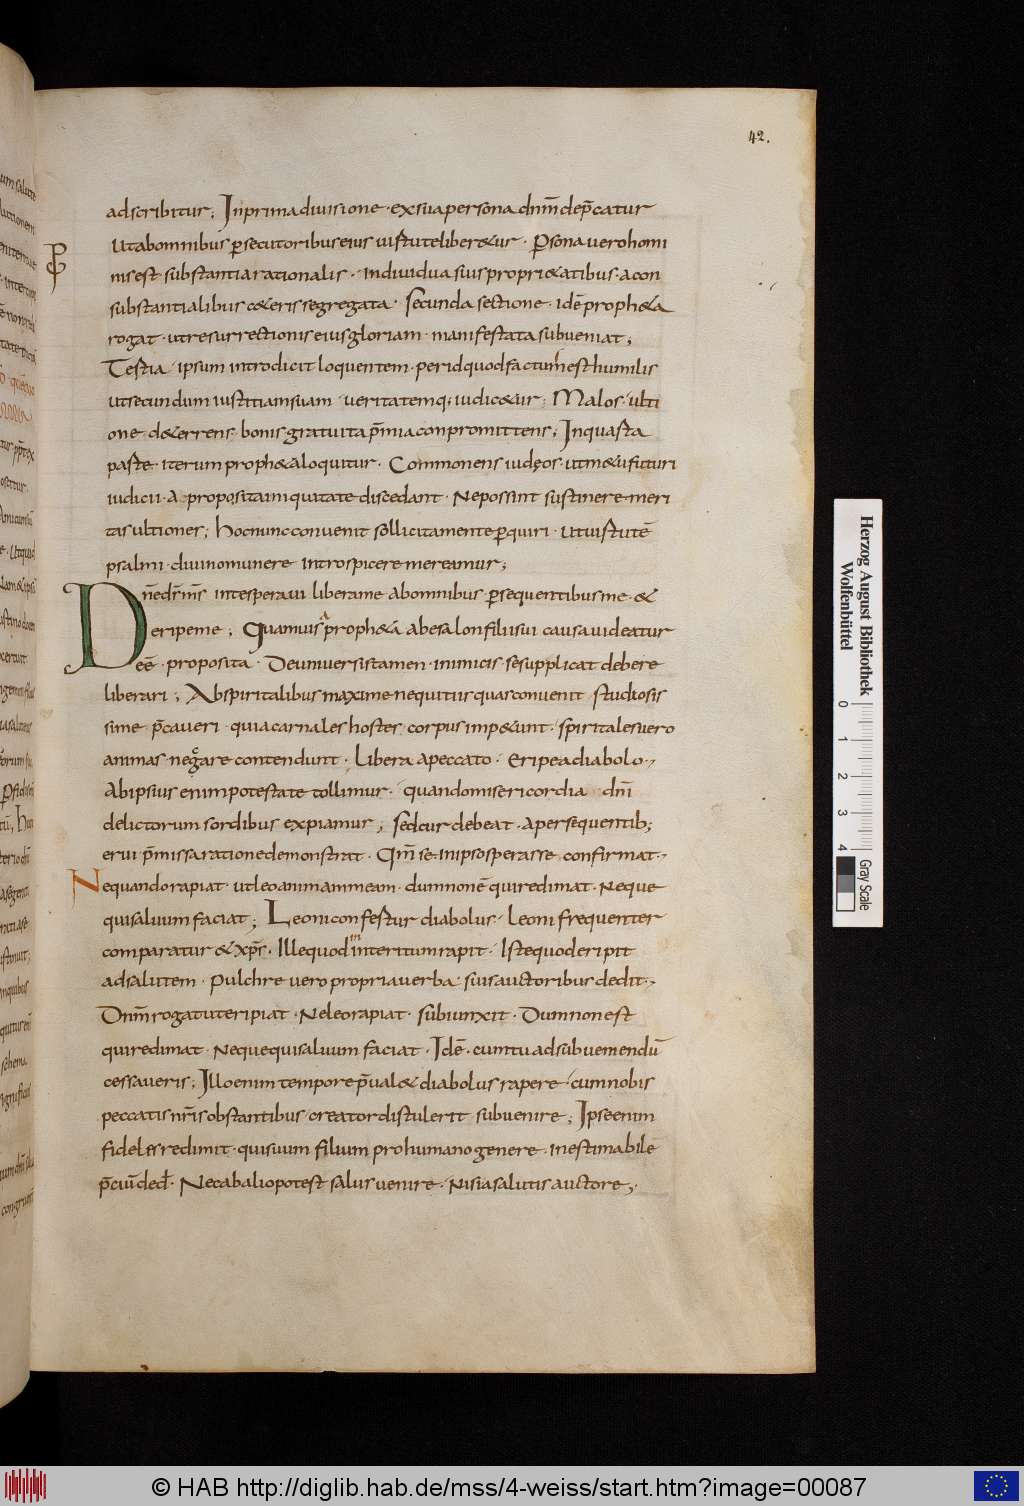 42.
adscribitur; Inprima diuisione · exsua persona dnm̄ dep̄catur
Utabomnibus ꝑsecutoribus eius uirtute liber&ur · Ꝑsona uero homi
nis est substantia rationalis · indiuidua suis propri&atibus · acon
substantialibus c&eris segregata · Secunda sectione · idē proph&a
rogat · ut resurrectionis eius gloriam · manifestata subueniat;
Tertia ipsum introdicit loquentem · perid quod factum est humilis
ut secundum iustitiam suam · ueritatemq; iudic&ur; Malos · ulti
one d&errens · bonis gratuita p̄mia conpromittens; Inquarta
parte · iterum proph&a loquitur · Commonens iudęos · ut m&u futuri
iudicii · a proposita iniquitate discedant · Ne possint sustinere meri
tas ultiones; hoc nunc conuenit sollicita mente ꝑquiri · Ut uirtutē
psalmi · diuino munere introspicere mereamur;
Dn̄e dr̄ mr̄s inte speraui libera me abomnibus ꝑsequentibus me · &
eripe me; Quamuis a proph&a abesalon filii sui causa uideatur
eē · proposita · Deuniuersis tamen · inimicis · se supplicat debere
liberari; Abspiritalibus maxime nequitiis quas conuenit studiosis
sime p̄caueri · quia carnales hostes corpus imp&unt · spiritales uero
animas negare contendunt · Libera apeccato · Eripe adiabolo ·
Abipsius enim potestate tollimur · quando misericordia dnī
delictorum sordibus expiamur; sed cur debeat · apersequentib;
erui p̄missa ratione demonstrat · Qm̄ se inipso sperasse confirmat ·
Nequando rapiat · ut leo animam meam · dum non ē qui redimat · Neque
qui saluum faciat; Leoni confertur diabolus · Leoni frequenter
comparatur & xp̄s · Ille quod in interitum rapit · Iste quod eripit
adsalutem · Pulchre uero propria uerba suis auctoribus dedit ·
Dnm̄ rogat ut eripiat · Ne leo rapiat · subiunxit · Dum non est
qui redimat · Neque qui saluum faciat · Idē · cum tu adsubueniendū
cessaueris; Illo enim tempore p̄ual& diabolus rapere · cum nobis
peccatis nr̄is obstantibus creator distulerit subuenire; Ipse enim
fideles redimit · qui suum filium pro humano genere · inestimabile
p̄ciū ded̄ · Nec abalio potest salus uenire · Nisi a salutis auctore;
Herzog August Bibliothek
Wolfenbüttel
0 1 2 3 4
Gray Scale
© HAB http://diglib.hab.de/mss/4-weiss/start.htm?image=00087